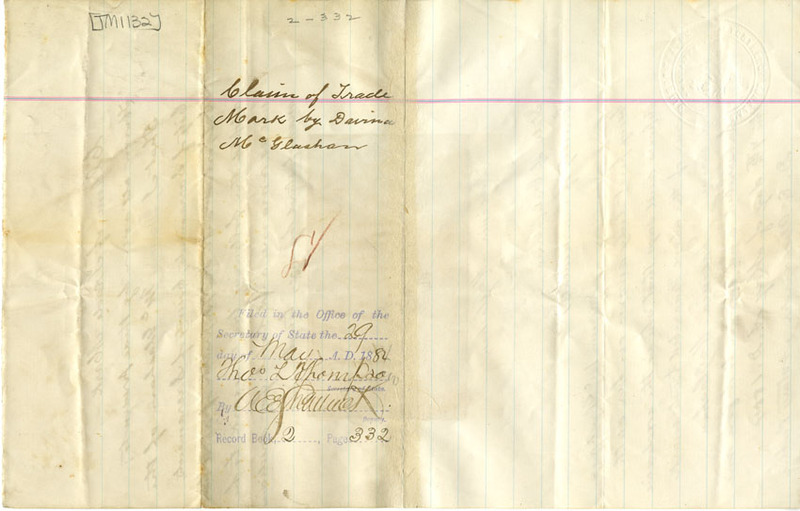 [TM1132]
2-332
Claim of Trade
Mark by Davina
McGlashan
Filed in the Office of the
Secretary of State the 29
day of May A.D. 188
Thos L Thompson
Secretary of State
By
Deputy
Record Book 2, Page 332